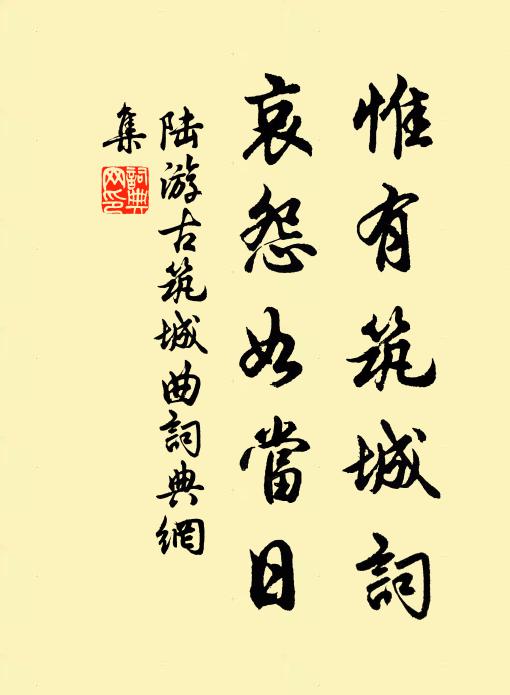 惟有筑城詞
哀怨如當日
陸游古筑城曲詞典網
集
詞典
网印